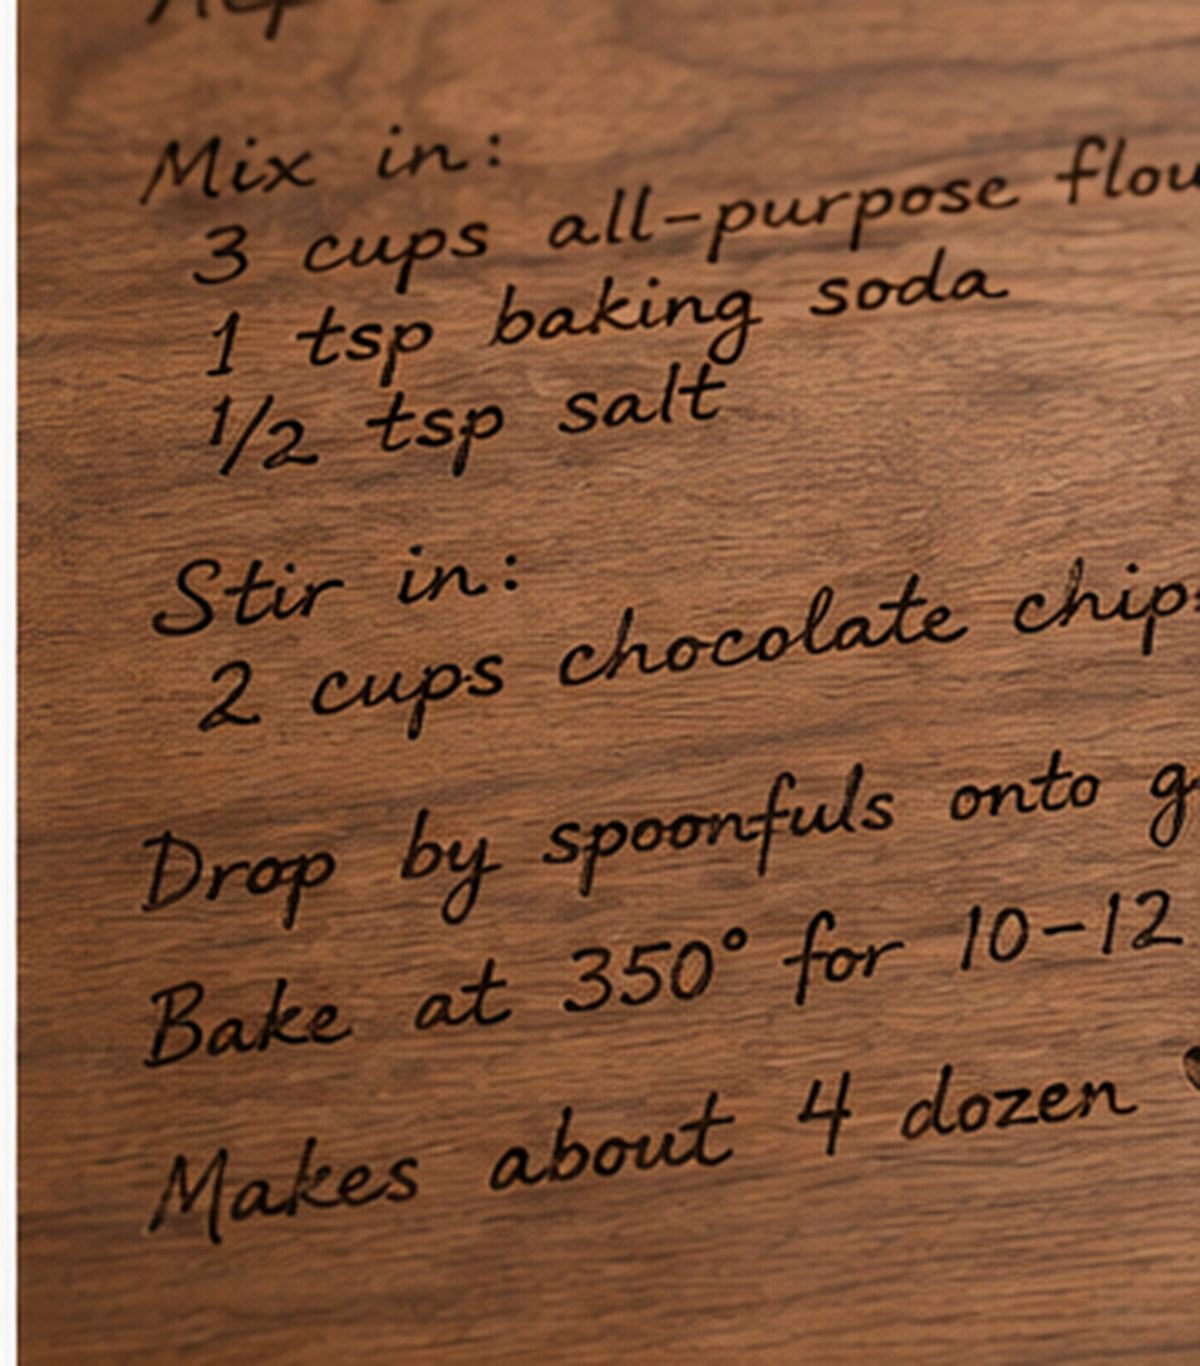 Mix in:
3 cups all-purpose flou
1 tsp baking soda
1/2 tsp salt
Stir in:
2 cups chocolate chip
Drop by spoonfuls onto g
Bake at 350° for 10-12
Makes about 4 dozen